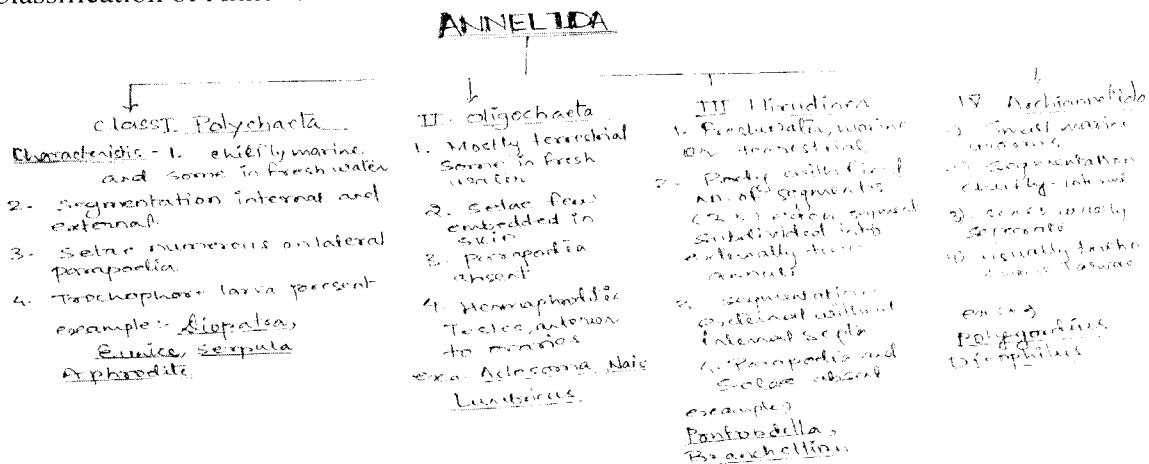 ANNELIDA
Class I. Polychaeta
Characteristic - 1. chiefly marine
and some in fresh water
2- Segmentation internal and
external.
3- Setae numerous on lateral
parapodia
4- Trochophore larva present
example:- Diopatsa,
Eunice, Serpula
Aphrodite
II. Oligochaeta
1. Mostly terrestrial
some in fresh
water
2. Setae few
embedded in
skin
3. Parapodia
absent
4. Hermaphroditic
Testes, anterior
to ovaries
exa. Aelosoma, Nais
Lumbricus
III Hirudinea
1- Freshwater, marine
or terrestrial
2- Body
no. of segments
segment
subdivided into
externally
annuli
3. Segmentation
external without
internal septa
4. Parapodia and
Setae absent
example,
Pontobdella,
Branchellion
IV Archiannelida
marine
Segmentation
chiefly internal
3) usually
4) usually
larvae
Polygordius
Dinophilus